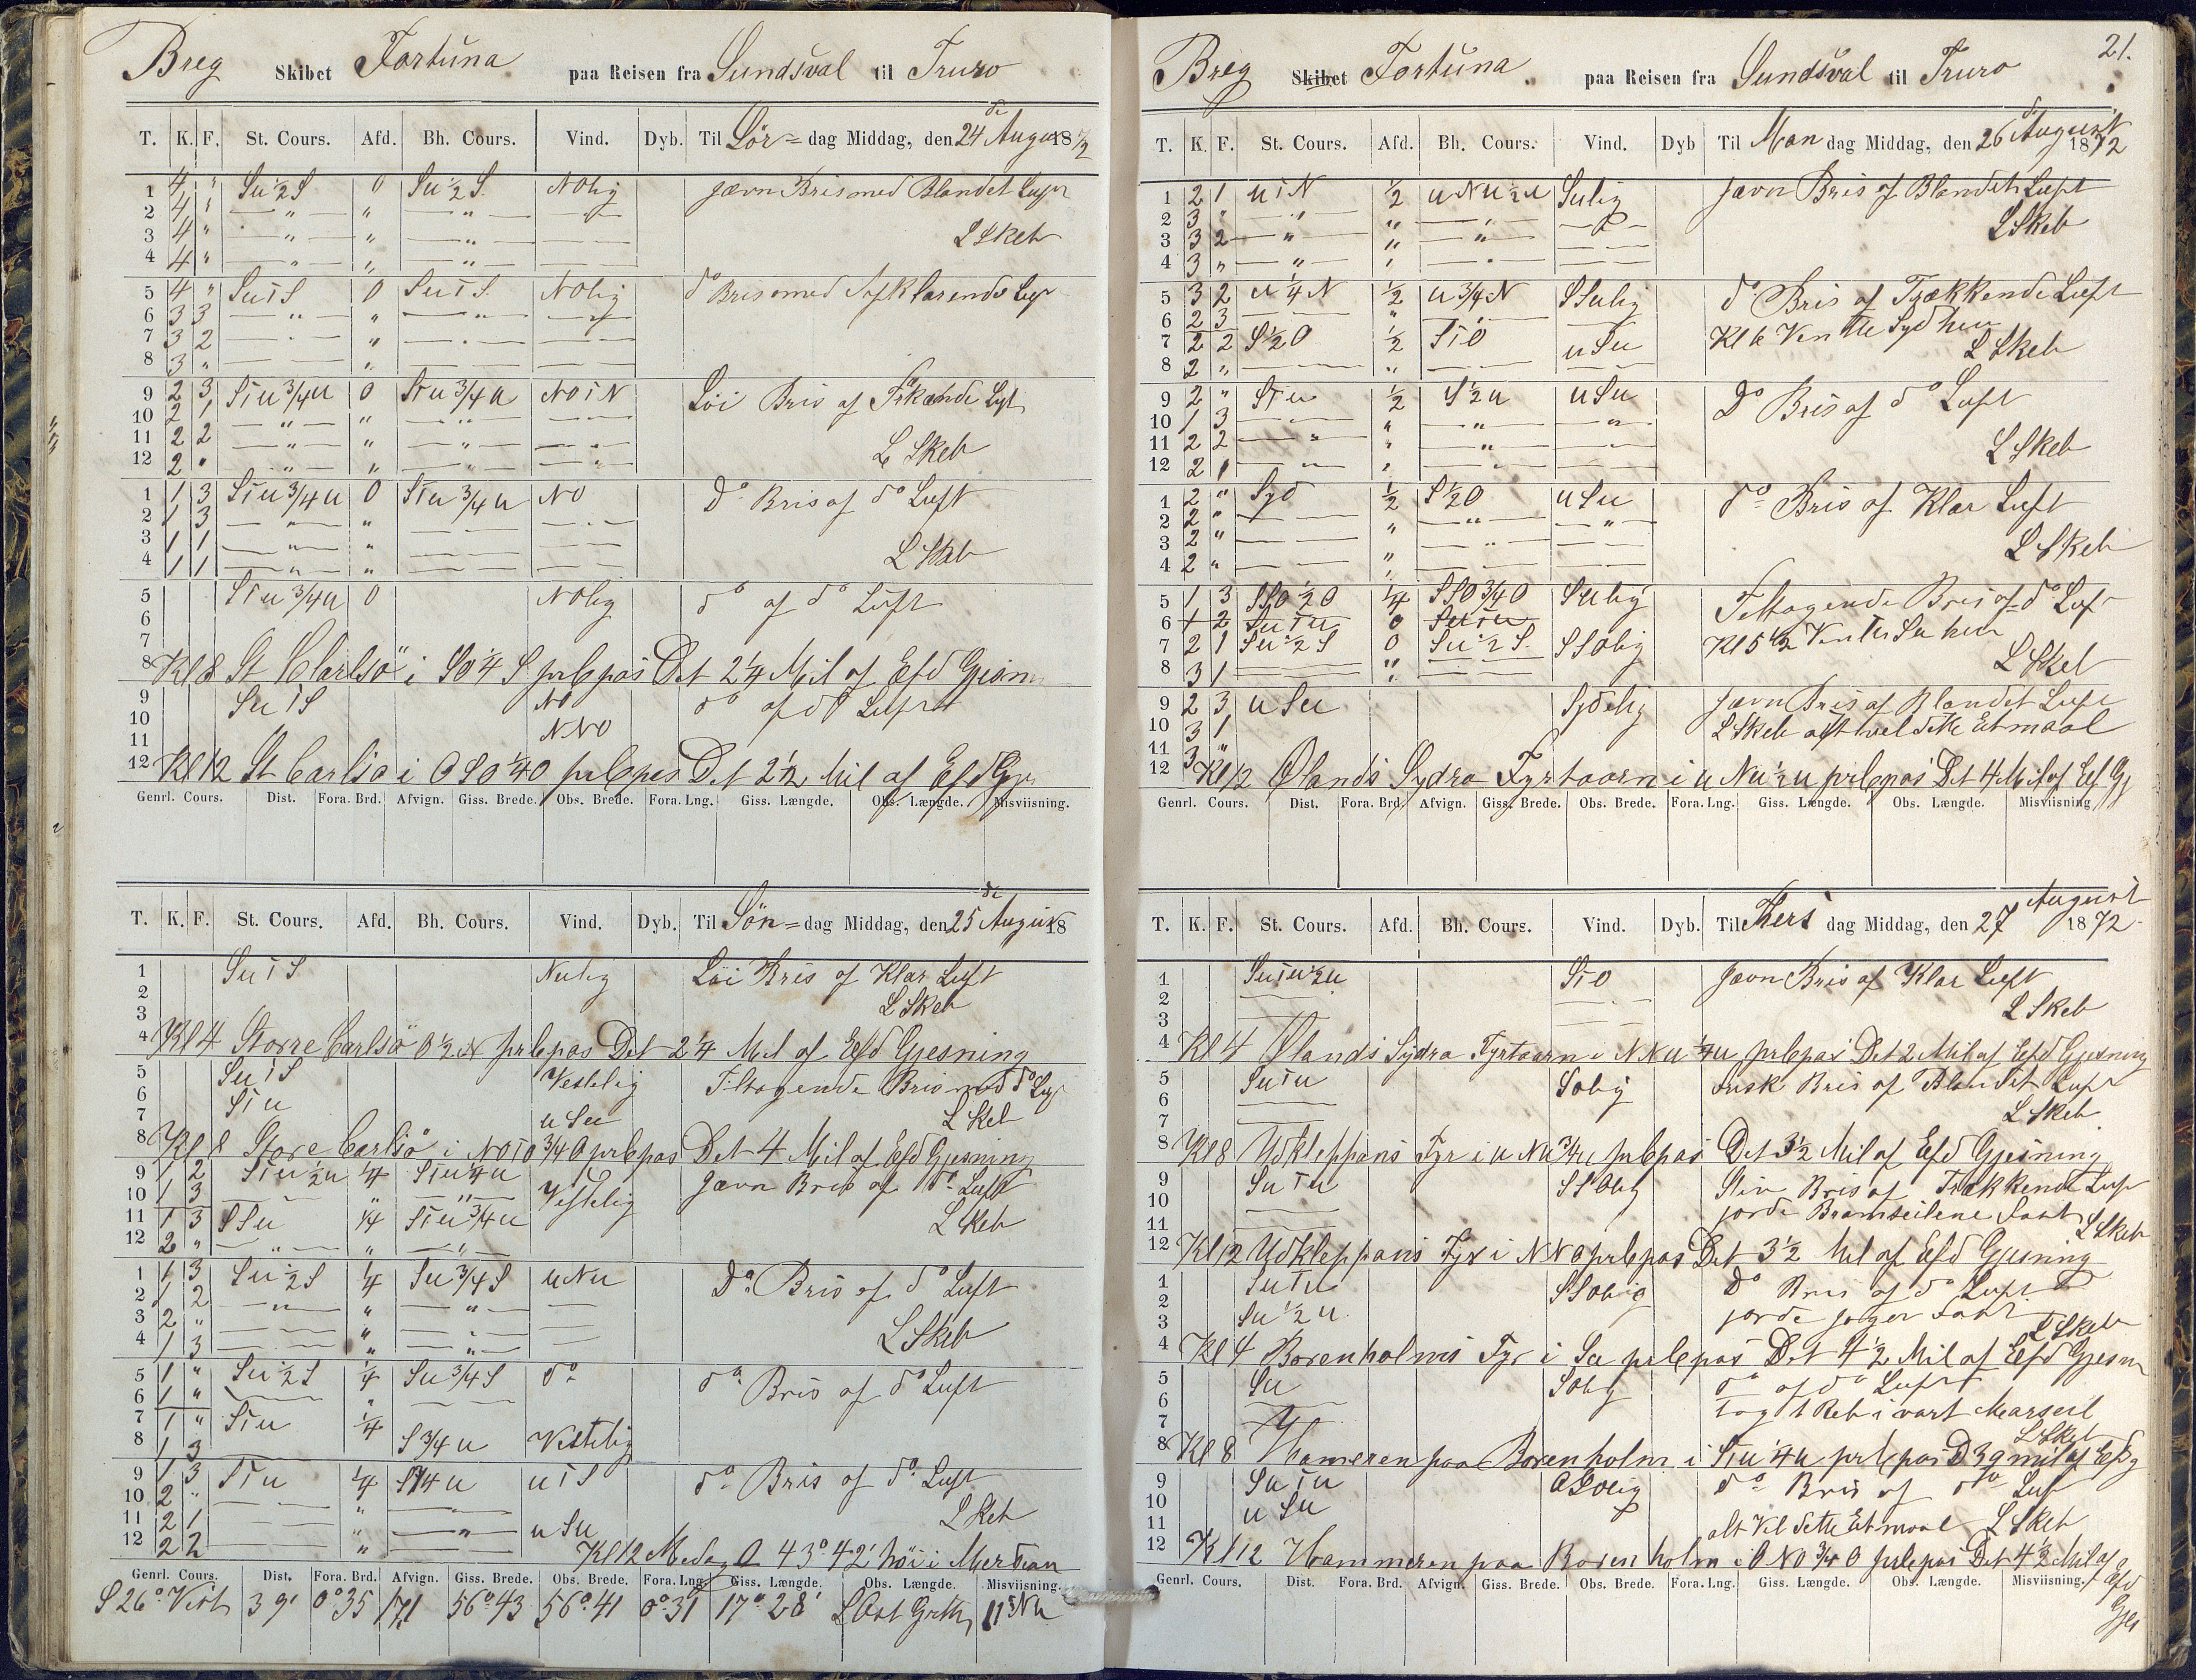 Breg Skibet Fortuna paa Reisen fra Sundsval til Truro
T. K. F. St. Cours. Afd. Bh. Cours. Vind. Dyb. Til Lör= dag Middag, den 24 de August 1872
1 4 " Su ½ S 0 Su ½ S. NOlig jævn Bris med Blandet Luft
2 4 " — " — " — " — — " —
3 4 " — " — " — " — — — L Skeb
4 4 " — " — " — " — — —
5 4 " Su i S 0 Su i S. NOlig do Bris med Klarende Luft
6 3 3 — " — " — " — — " —
7 3 2 — " — " — " — — —
8 3 " — — " — — — —
9 2 3 Siu ¾ u 0 Siu ¾ u NOiN Löi Bris af Luft
10 2 1 — " — " — " — — —
11 2 2 — " — " — " — — " — L Skeb
12 2 " — " — " — " — — " —
1 1 3 Siu ¾ u 0 Siu ¾ u NO Do Bris af do Luft
2 1 3 — " — " — — — " —
3 1 1 — " — " — — — — L Skeb
4 1 1 — " — " — — — —
5 Siu ¾ u 0 NOlig do af do Luft
6
7
8 Kl 8 St Carlsö i SO ¼ S prCpas Det 2¼ Mil af Efd Gjisn
9 Su i S NO do af do Luft
10 NNO
11
12 Kl 12 St Carlsö i OSO ¼ O prCpas Det 2½ Mil af Efd Gjs
Genrl. Cours. Dist. Fora. Brd. Afvign. Giss. Brede. Obs. Brede. Fora. Lng. Giss. Længde. Obs. Længde. Misviisning.
T. K. F. St. Cours. Afd. Bh. Cours. Vind. Dyb. Til Sön= dag Middag, den 25 de August 18
1 Su i S Nulig Löi Bris af Klar Luft
2 L Skeb
3
4 Kl 4 Storre Carlsö O ½ N prCpas Det 2¼ Mil af Efd Gjesning
5 Su i S Vestelig Tiltagende Bris med do Luft
6 Siu
7 u Su L Skeb
8 Kl 8 Store Carlsö i NOiO ¾ O prCpas Det 4 Mil af Efd Gjesning
9 1 2 Siu ½ u ¼ Siu ¼ u Vestelig jævn Bris af do Luft
10 1 3 — " — " — " —
11 1 3 SSu ¼ Siu ¾ u L Skeb
12 2 " — " — " — " —
1 1 3 Su ½ S ¼ Su ¾ S uNu Do Bris af do Luft
2 1 2 — " — " — " — —
3 2 " — — " — — — L Skeb
4 1 3 — — " — " — —
5 1 " Su ½ S ¼ Su ¾ S do do Bris af do Luft
6 1 " — " — —
7 1 " Siu ¼
8 1 3 S ¾ u Vestelig
9 1 3 Siu ¼ S ¼ u u i S do Bris af do Luft
10 2 " — — " — —
11 2 1 — — " — " — u Su L Skeb
12 2 2 " — — Kl 12 Medag O 43° 42' höi i Meridian
Genrl. Cours. Dist. Fora. Brd. Afvign. Giss. Brede. Obs. Brede. Fora. Lng. Giss. Længde. Obs. Længde. Misviisning.
S 26° Vest 39' 0° 35 171 56° 43 56° 41 0° 31 17° 28' L Ost Grtk 11° Nu
21.
Breg Skibet Fortuna paa Reisen fra Sundsval til Truro
T. K. F. St. Cours. Afd. Bh. Cours. Vind. Dyb Til Man dag Middag, den 26 d August 1872
1 2 1 u i N ½ u Nu ½ u Sulig jævn Bris af Blandet Luft
2 3 " — " — " — " — — " — L Skeb
3 3 2 — " — " — " — — —
4 3 " — " — " — " — — —
5 3 2 u ¼ N ½ u ¾ N SSulig do Bris af Tjækkende Luft
6 2 3 — — " — — — — Kl 6 Venste Syd hen
7 2 2 S ½ O ½ SiO u Su L Skeb
8 2 " — — " — — — —
9 2 " Siu ½ S ½ u u Su Do Bris af do Luft
10 1 3 — — " — " — — " —
11 2 2 — " — " — " — — — L Skeb
12 2 1 — " — " — — — —
1 2 " Syd ½ S ½ O u Su do Bris af Klar Luft
2 2 " — — " — " — — " —
3 2 " — — " — " — — — L Skeb
4 2 " — — " — — — —
5 1 3 SSO ½ O ¼ SSO ¾ O Sulig Tiltagende Bris af do Luft
6 1 2 Suiu 0 Suiu Kl 5½ Venste Su hen
7 2 1 Su ½ S 0 Su ½ S. SSOlig
8 3 1 — — " — — L Skeb
9 2 3 u Su Sydelig jævn Bris af Blandet Luft
10 3 1 L Skeb alt vel dette Etmaal
11 3 "
12 Kl 12 Ölands Sydra Fyrtaarn i u Nu ½ u prCpas Det 4 Mil af Ef Gj
Genrl. Cours. Dist. Fora. Brd. Afvign. Giss. Brede. Obs. Brede. Fora. Lng. Giss. Længde. Obs. Længde. Misviisning
T. K. F. St. Cours. Afd. Bh. Cours. Vind. Dyb. Til Thers dag Middag, den 27 August 1872
1 Suiu ½ u SiO jævn Bris af Klar Luft
2 — — L Skeb
3 —
4 Kl 4 Ölands Sydra Fyrtaarn i NNu ¼ u prCpas Det 2 Mil af Efd Gjesning
5 Suiu SOlig frisk Bris af Blandet Luft
6 — L Skeb
7 —
8 Kl 8 Udkleppans Fyr i u Nu ¾ u prCpas Det 3½ Mil af Efd Gjesning
9 Suiu SSOlig Stiv Bris af Trækkende Luft
10 — jorde Bramseilene fast
11 — L Skeb
12 Kl 12 Udkleppans Fyr i NNO prCpas Det 3½ Mil af Efd Gjesning
1 Suiu SSOlig do Bris af do Luft
2 Su ½ u jorde jager fast
3 L Skeb
4 Kl 4 Borenholms Fyr i Su prCpas Det 4½ Mil af Efd Gjesn
5 Su SOlig do af do Luft
6 — tog 1 Reb i vart Marseil
7 — L Skeb
8 Kl 8 Hameren paa Borenholm i Siu ¼ u prCpas D 3 mil af Ef g
9 Suiu OSOlig do Bris af do Luf
10 u Su
11 alt Vel dette Etmaal L Skeb
12 Kl 12 Hammeren paa Boren holm i ONO ¾ O prCpas Det 4½ Mil af Efd Gjes
Genrl. Cours. Dist. Fora. Brd. Afvign. Giss. Brede. Obs. Brede. Fora. Lng. Giss. Længde. Obs. Længde. Misviisning.